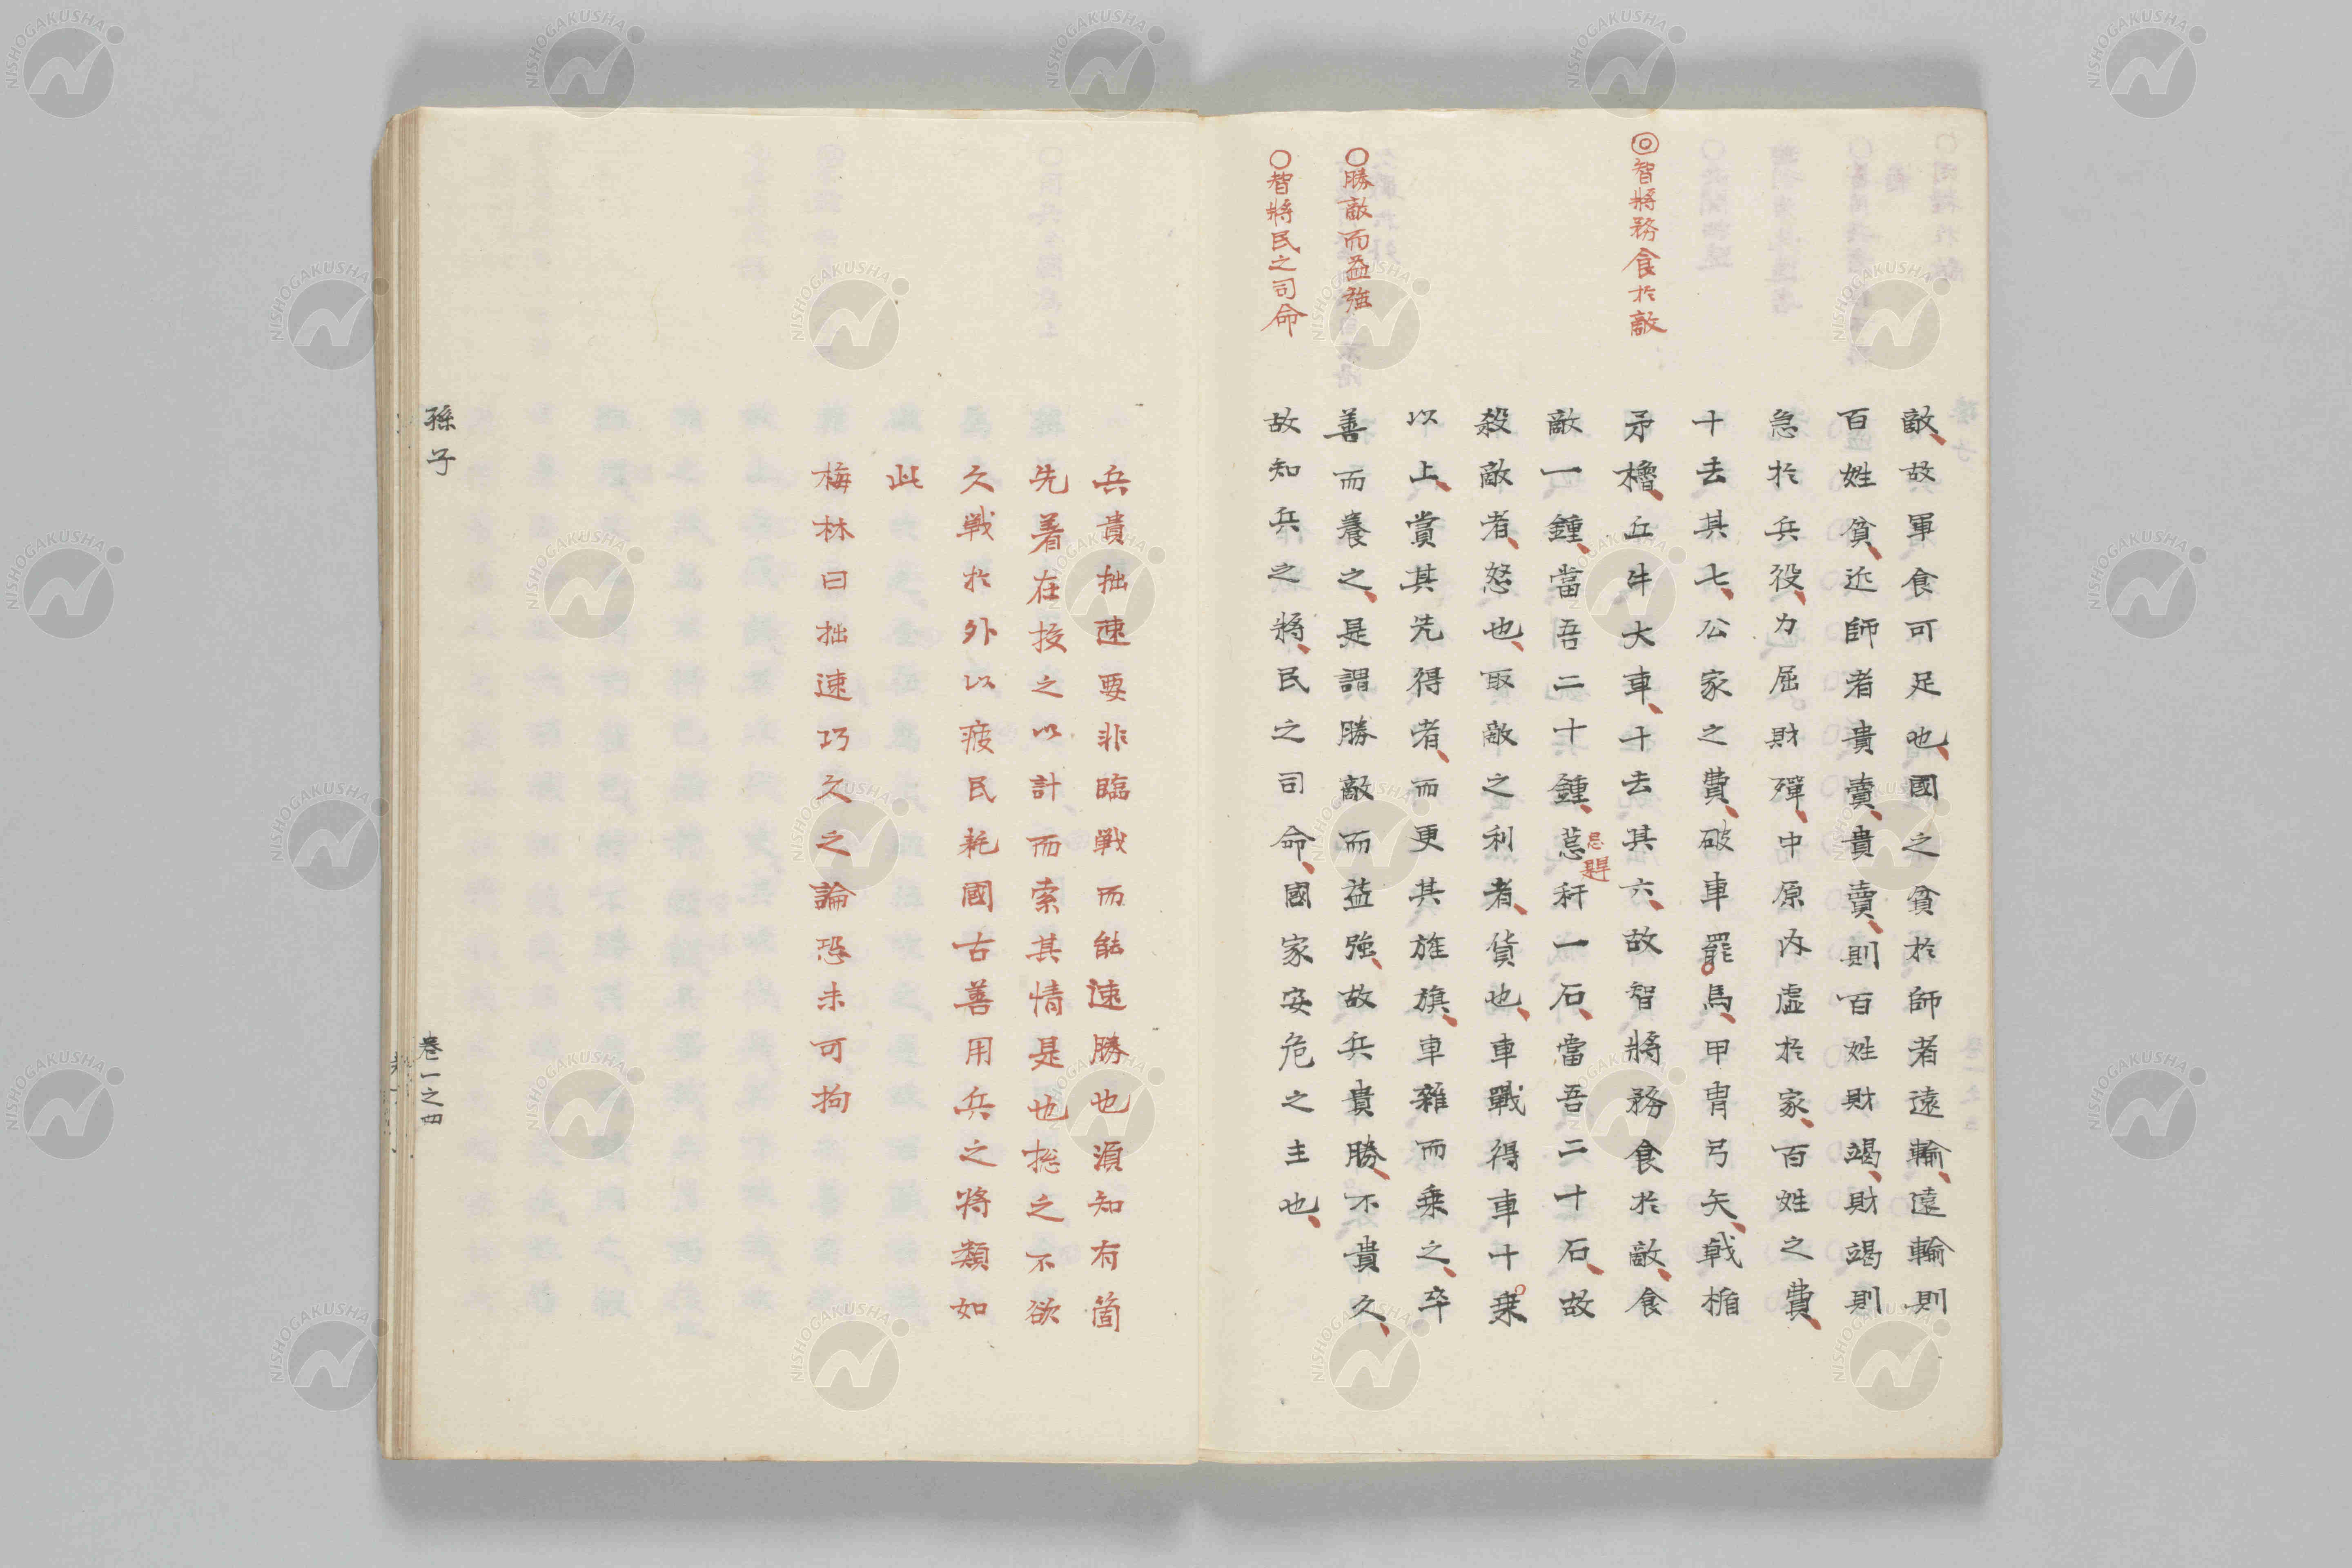 ◎智將務食於敵
○勝敵而益強
○智將民之司命
敵故軍食可足也國之貧於師者遠輸遠輸則
百姓貧近師者貴賣貴賣則百姓財竭財竭則
急於兵役力屈財殫中原內虛於家百姓之費
十去其七公家之費破車罷馬甲冑弓矢戟楯
矛櫓丘牛大車十去其六故智將務食於敵食
敵一鍾當吾二十鍾䓀秆一石當吾二十石故
忌
殺敵者怒也取敵之利者貨也車戰得車十乗
以上賞其先得者而更其旌旗車雜而乗之卒
善而養之是謂勝敵而益強故兵貴勝不貴久
故知兵之將民之司命國家安危之主也
兵貴拙速要非臨戦而能速勝也須知有箇
先着在授之以計而索其情是也捴之不欲
久戦於外以疲民耗國古善用兵之将類如
此
梅林曰拙速巧久之論恐未可拘
孫子
巻一之四
NISHOGAKUSHA